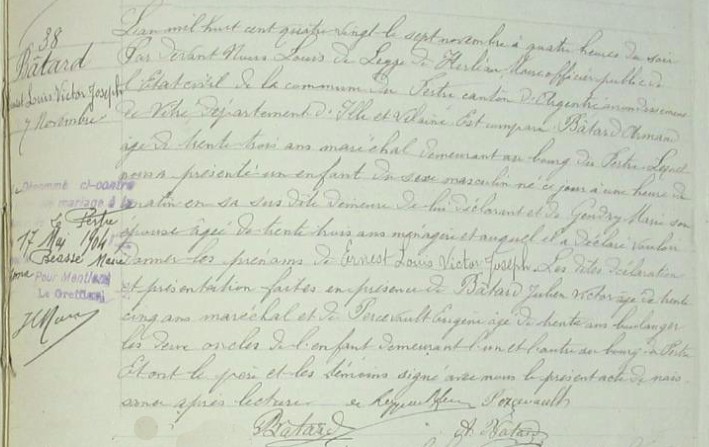 38
Bâtard
Ernest Louis Victor Joseph
7 Novembre
Dénommé ci-contre
mariage à la
Le Pertre
17 Mai 1904
Besssé Marie
Pour Mention
Le Greffier
L'an mil huit cent quatre vingt le sept novembre à quatre heures du soir
Par devant Nous Louis de Legge de Kerléan Maire officier public de
l'Etat civil de la commune du Pertre canton d'Argentré arrondissement
de Vitré, Département d'Ille et Vilaine Est comparu Bâtard Armand
âgé de trente trois ans maréchal demeurant au bourg du Pertre Lequel
nous a présenté un enfant du sexe masculin né ce jour à une heure du
matin en sa sus dite demeure de lui déclarant et de Gendry Marie son
épouse âgée de trente trois ans ménagère et auquel il a déclaré vouloir
donner les prénoms de Ernest Louis Victor Joseph. Les dites déclaration
et présentation faites en présence de Bâtard Julien Victor âgé de trente
cinq ans maréchal et de Percevault Eugène âgé de trente ans boulanger
les deux oncles de l'enfant demeurant l'un et l'autre au bourg du Pertre
Et ont le père et les témoins signé avec nous le présent acte de nais
sance après lecture Percevault
Bâtard A Bâtard